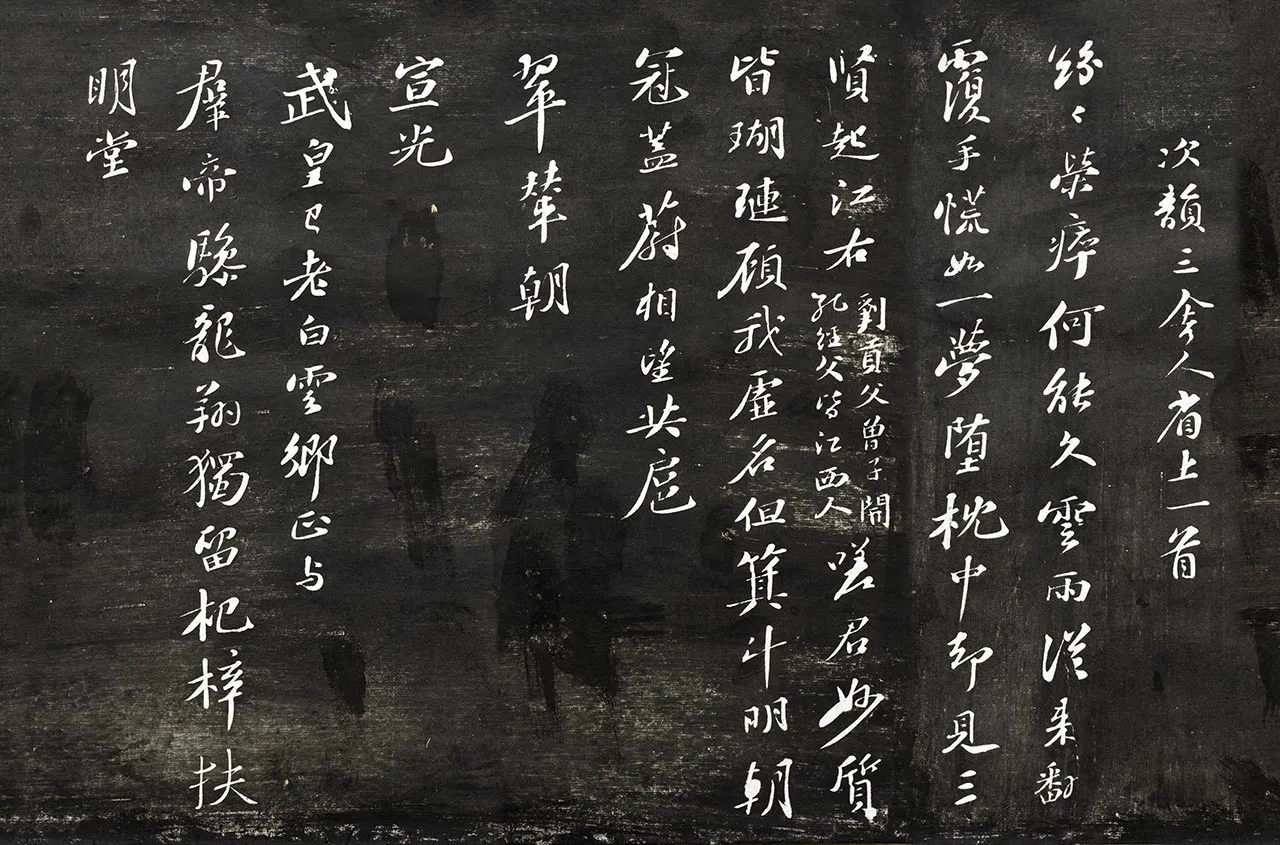 次韻三舍人省上一首
紛々榮瘁何能久雲雨從来翻
覆手慌如一夢墮枕中却見三
賢起江右
劉貢父曾子開
孔經父皆江西人
嗟君妙質
皆瑚璉顧我虛名但箕斗明朝
冠蓋蔚相望共扈
翠輦朝
宣光
武皇已老白雲鄉正与
羣帝驂龍翔獨留杞梓扶
明堂